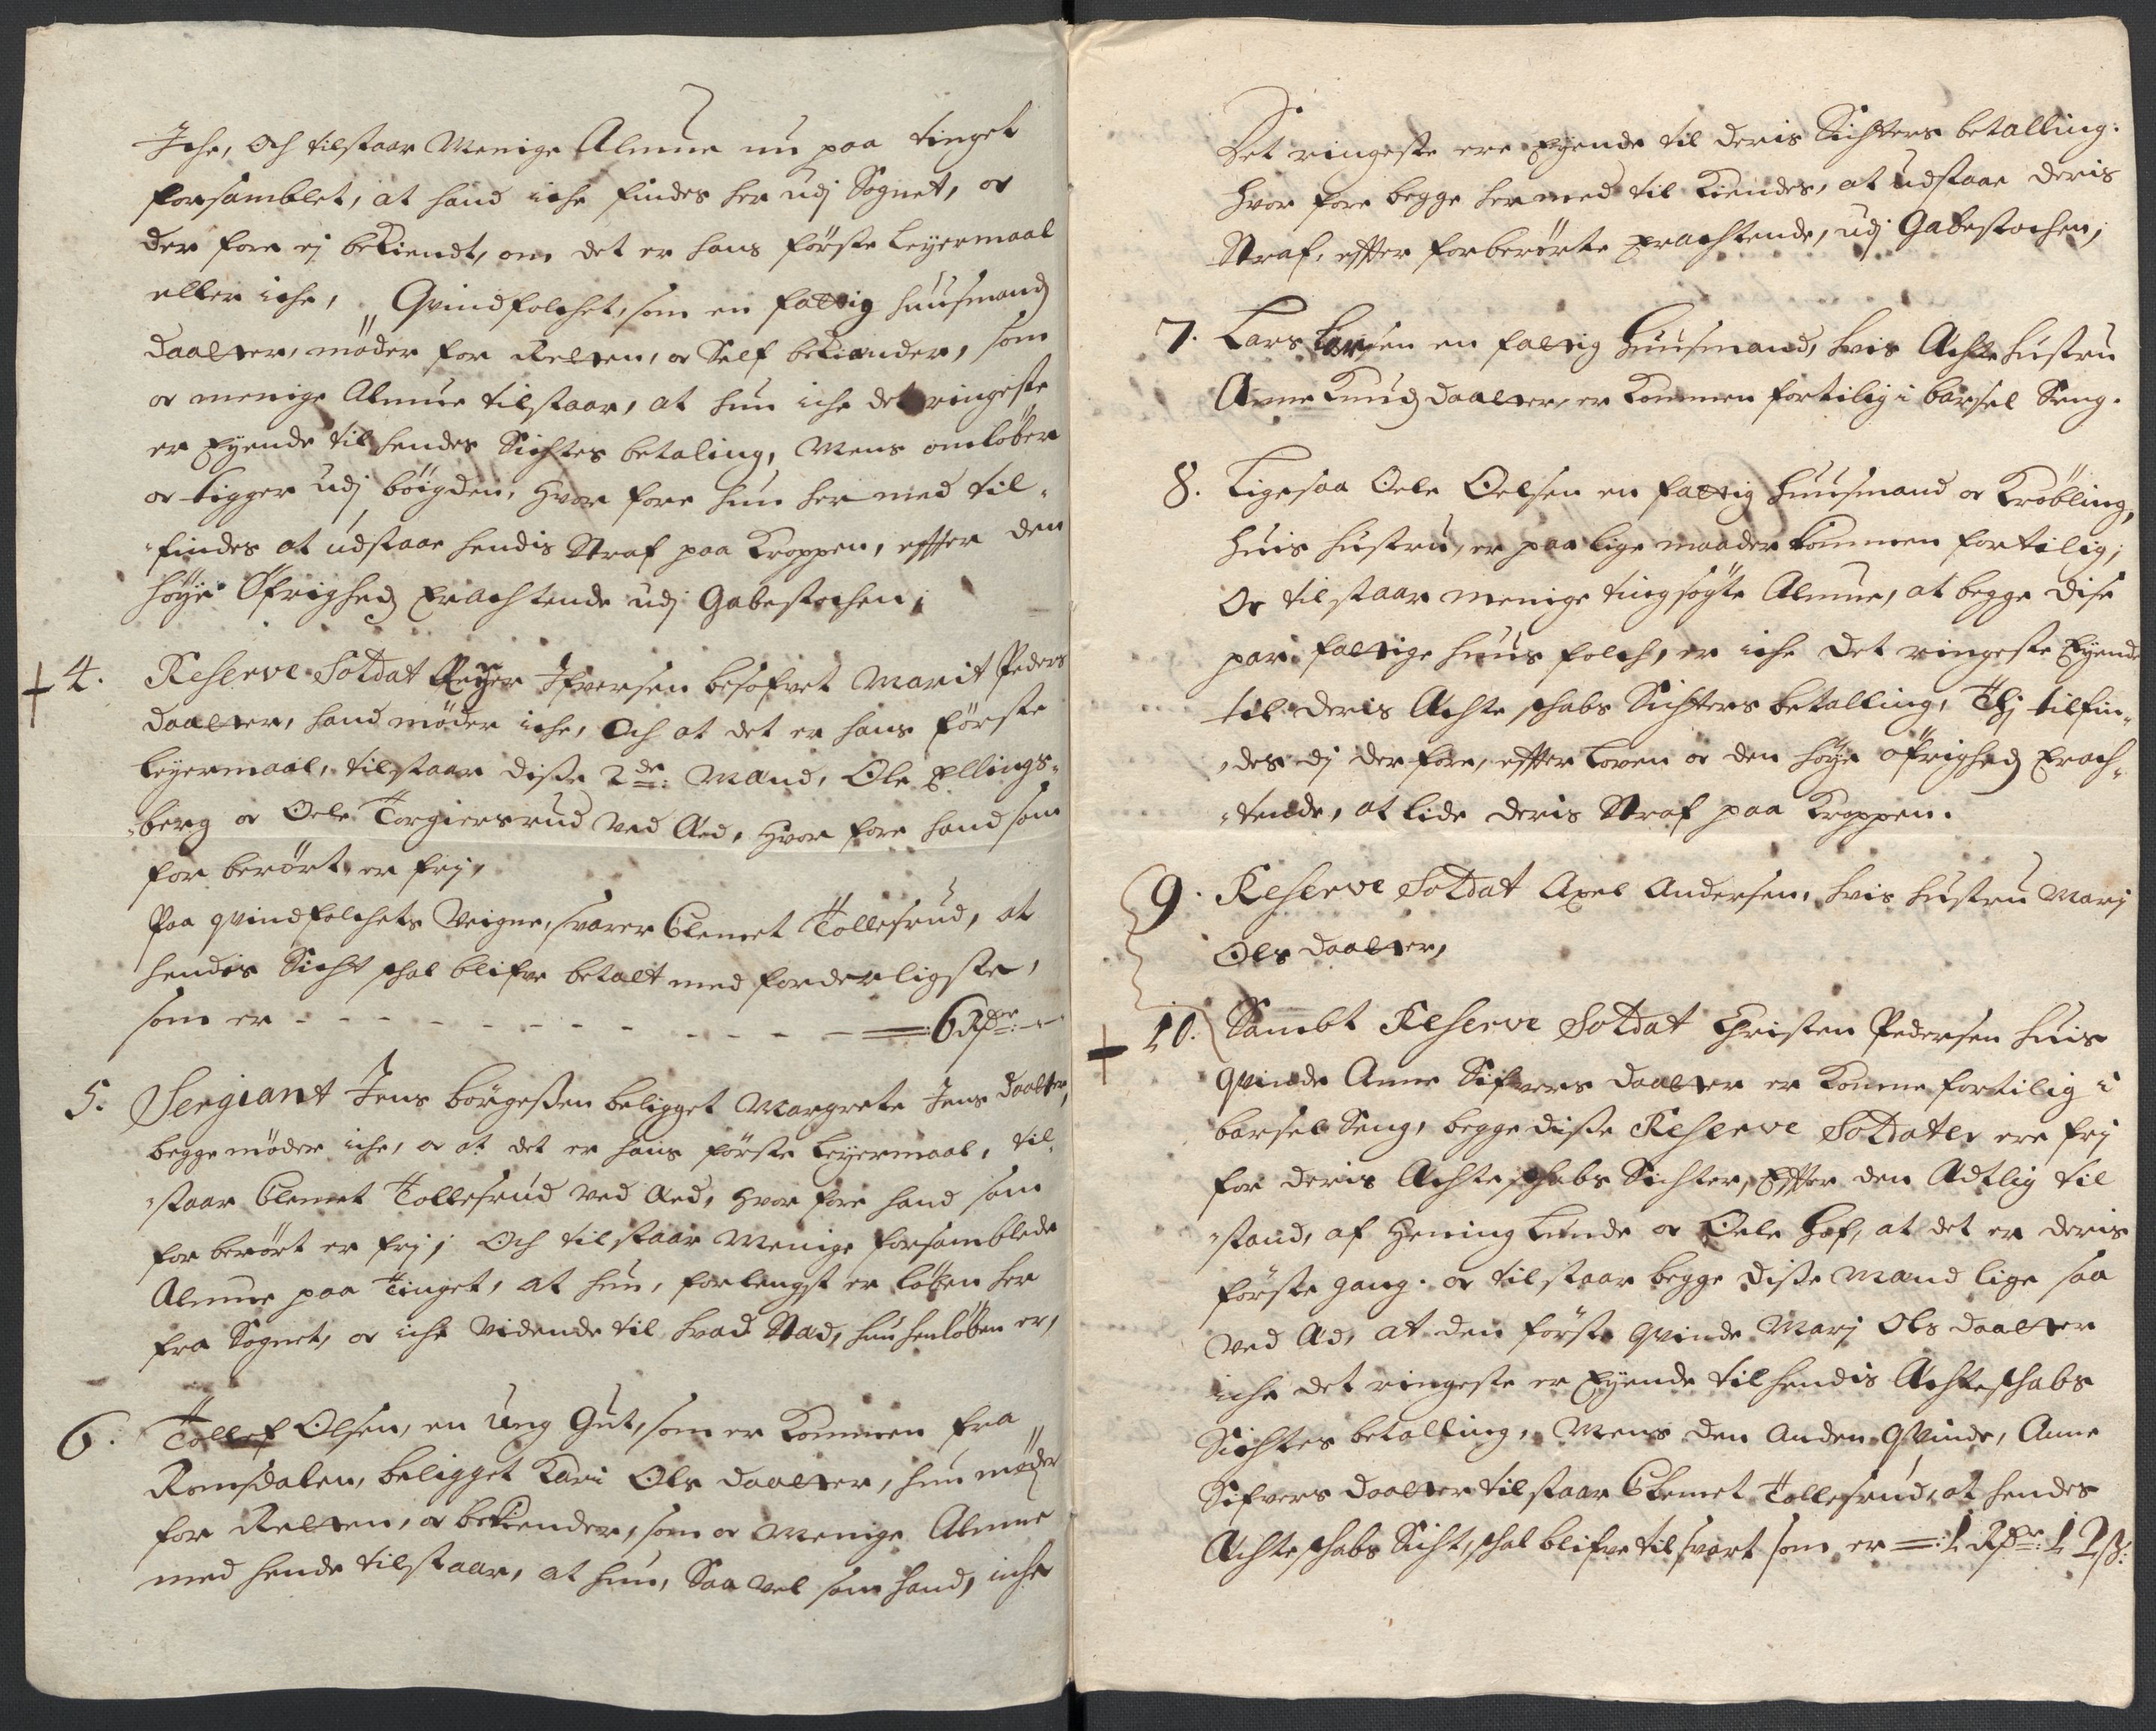 Iche, Och tilstaar Menige Almue nu paa tinget
forsamblet, at hand iche findes her udj Sognet, og
der fore ej bekiendt, om det er hans første Leyermaal
eller iche, Qvindfolchet, som en fattig huusmands
daatter, møder for Retten, og Self bekiender, som
og menige Almue tilstaar, at hun iche det ringeste
er Eyende til hendes Sichtes betaling, Mens omløber
og tigger udj bøigden, hvor fore hun her med til-
findes at udstaae hendis Straf paa Kroppen, effter den
høye Øfrighed Erachtende udj Gabestochen;
4. Reserve Soldat Reyer Ifversen besofvet Marit Peders
daatter, hand møder iche, Och at det er hans første
Leyermaal, tilstaar disse 2de: Mænd, Ole Ellings-
berg og Oele Torgiersrud ved Æd, hvor fore hand som
for berørt er frj,
Paa qvindfolchets Veigne, svarer Clemet Tollefsrud, at
hendis Sicht schal blifve betalt med forderligste,
som er - - - - - - - - - - = 6 Rdr: - -
5. Sergiant Jens Børgessen beligget Margrete Jens daatter,
begge møder iche, og at det er hans første Leyermaal, til-
staar Clemet Tollefsrud ved Æd, hvor fore hand som
for berørt er frj; Och tilstaar Menige forsamblede
Almue paa Tinget, at hun, forlengst er løben her
fra Sognet, og iche vidende til hvad Stad, hun henløben er,
6. Tollef Olsen, en ung Gut, som er kommen fra
Romsdalen, beligget Kari Ols daatter, hun møder
for Retten, og bekiender, som og Menige Almue
med hende tilstaar, at hun, Saa vel som hand, iche
Det ringeste ere Eyende til deris Sichters betalling:
hvor fore begge her med til kiendes, at udstaae deris
Straf, effter forberørte Erachtende, udj Gabestochen;
7. Lars Larsen en fattig Huusmand, hvis Achte hustru
Anne Knuds daatter, er kommen fortilig i barsel Seng.
8. Ligesaa Oele Oelsen en fattig huusmand og Krøbling,
huis hustru, er paa lige maader kommen fortilig;
Og tilstaar menige tingsøgte Almue, at begge dise
par fattige huus folch, er iche det ringeste Eyende
til deris Achte schabs Sichters betalling, Thj tilfin-
des dj derfore, effter Loven og den høye øfrighed Erach-
tende, at lide deris Straf paa Kroppen.
9. Reserve Soldat Axel Andersen, hvis hustru Marj
Ols daatter,
10. Sambt Reserve Soldat Christen Pedersen huis
qvinde Anne Sifvers daatter er komme fortilig i
barsel Seng, begge disse Reserve Soldater ere frj
for deris Achteschabs Sichter, Effter den Ædtlig til
stand, af Hening Lunde og Oele Hof, at det er deris
første gang. og tilstaar begge disse Mænd lige saa
ved Æd, at den første qvinde Marj Ols daatter
iche det ringeste er Eyende til hendis Achteschabs
Sichtes betalling, Mens den anden qvinde, Anne
Sifvers daatter tilstaar Clemet Tollefsrud, at hendes
Achteschabs Sicht, schal blifve tilsvart som er =: 1 Rdr: 12 ß: